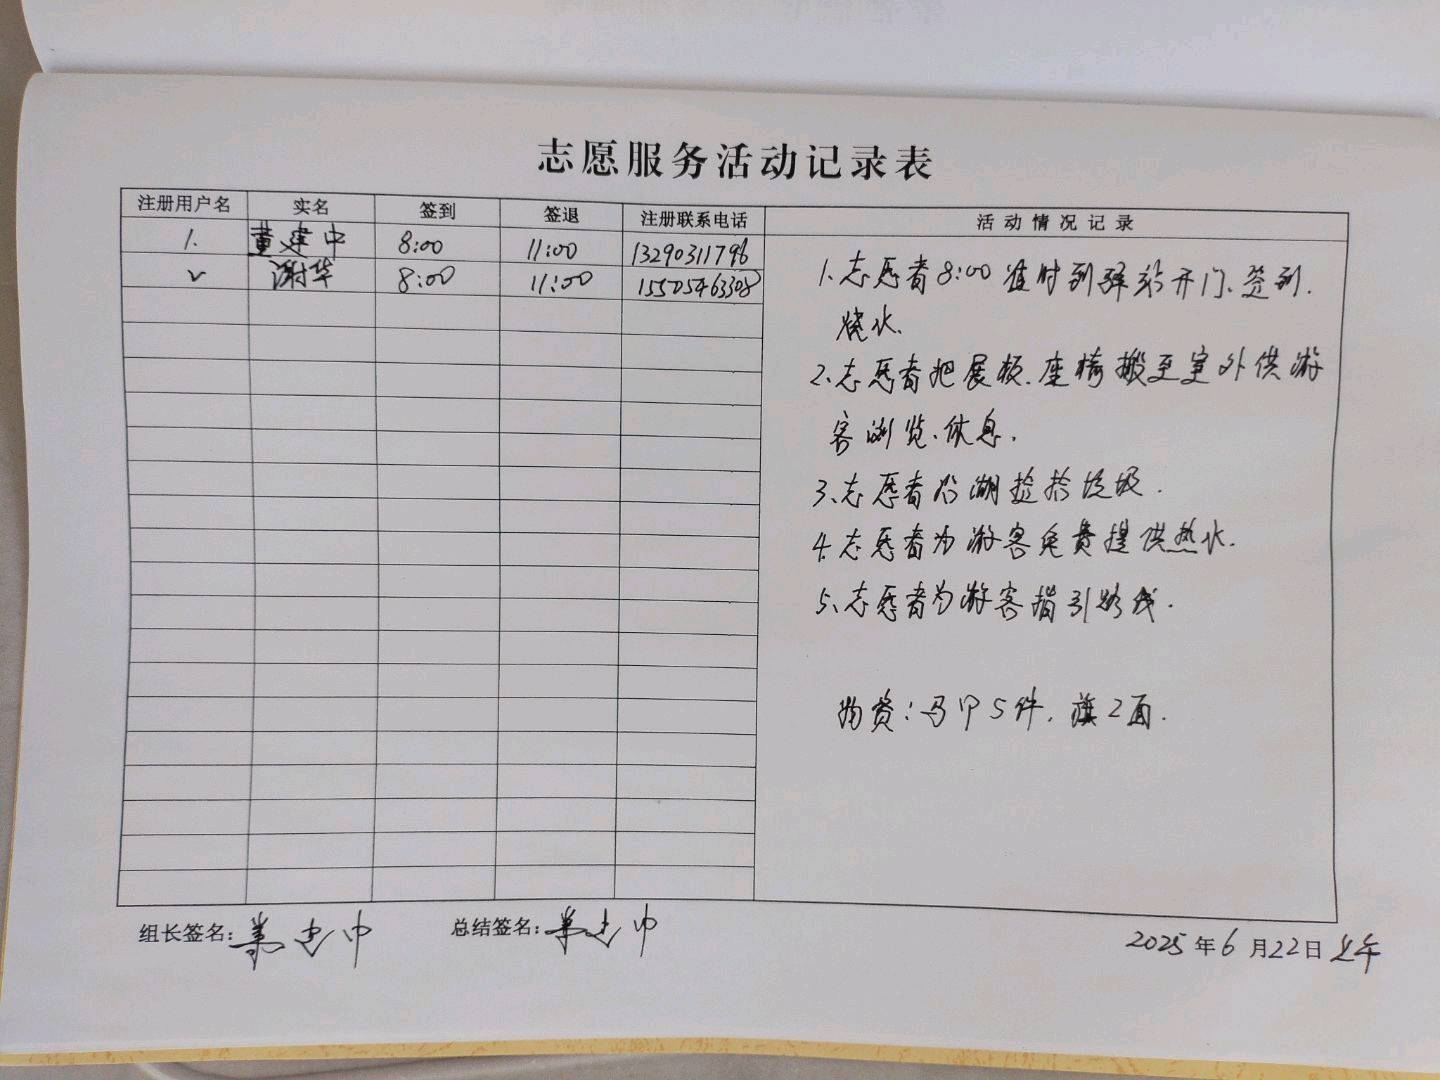 志愿服务活动记录表
注册用户名 实名 签到 签退 注册联系电话 活动情况记录
1. 黄建中 8:00 11:00 13290311796
2 谢华 8:00 11:00 15505463308
1、志愿者8:00准时到驿站开门、签到.
烧水.
2、志愿者把展板、座椅搬至室外供游
客浏览、休息.
3、志愿者沿湖捡拾垃圾.
4、志愿者为游客免费提供热水.
5、志愿者为游客指引路线.
物资：马甲5件，旗2面.
组长签名：黄建中 总结签名：黄建中
2025年6月22日上午